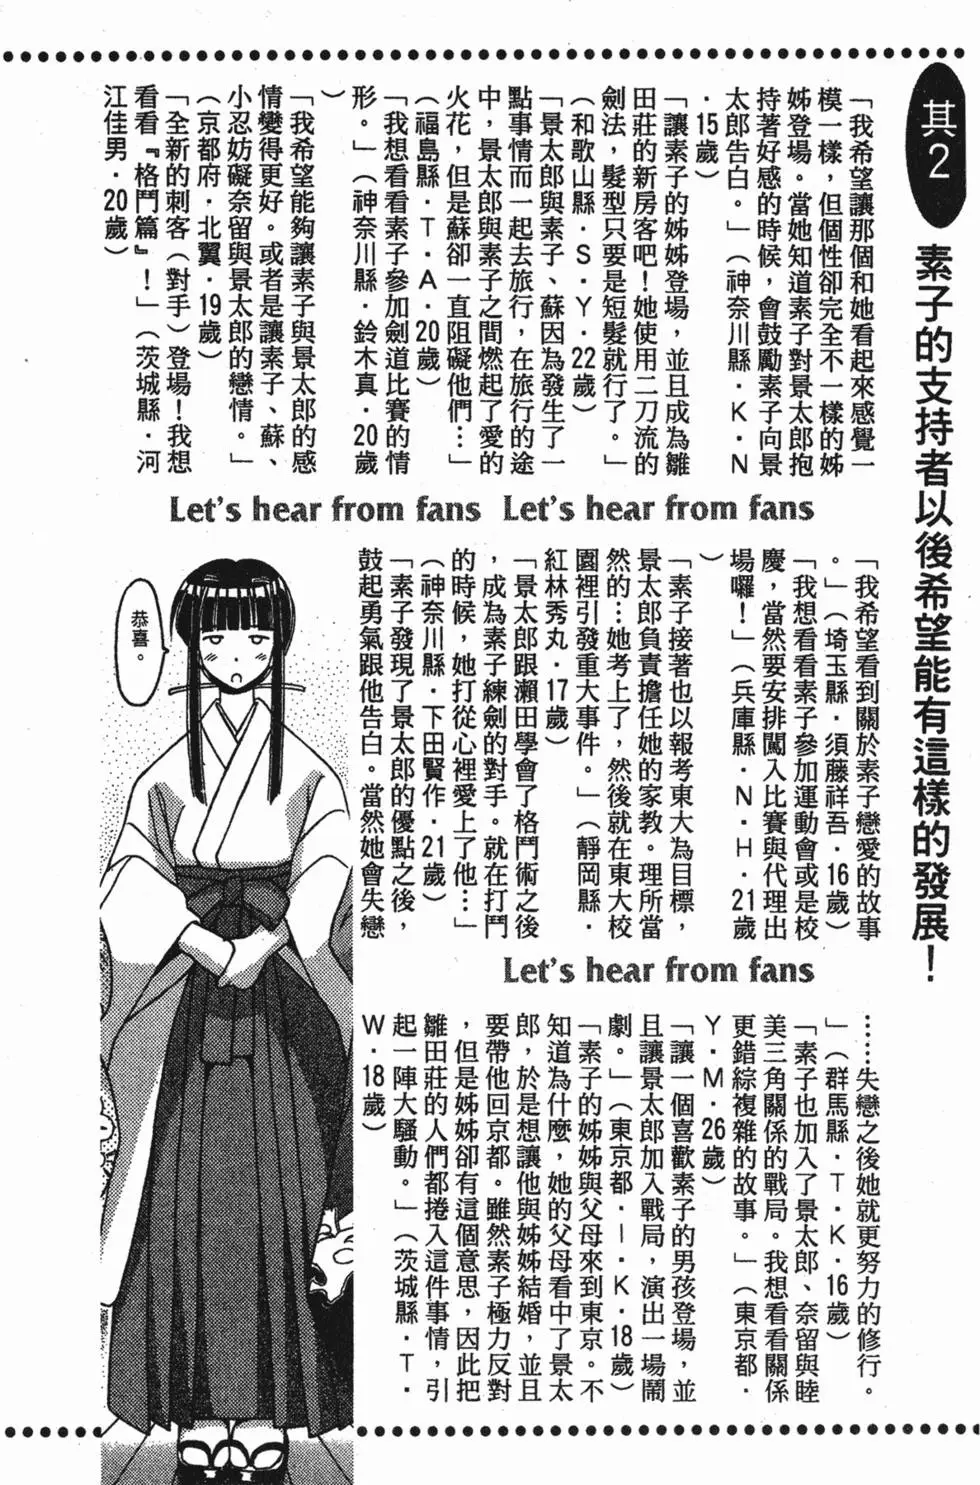 其2
素子的支持者以後希望能有這樣的發展！
「我希望讓那個和她看起來感覺一
模一樣，但個性卻完全不一樣的姊
姊登場。當她知道素子對景太郎抱
持著好感的時候，會鼓勵素子向景
太郎告白。」（神奈川縣・K・N
・15歲）
「讓素子的姊姊登場，並且成為雛
田莊的新房客吧！她使用二刀流的
劍法，髮型只要是短髮就行了。」
（和歌山縣・S・Y・22歲）
「景太郎與素子、蘇因為發生了一
點事情而一起去旅行，在旅行的途
中，景太郎與素子之間燃起了愛的
火花，但是蘇卻一直阻礙他們…」
（福島縣・T・A・20歲）
「我想看看素子參加劍道比賽的情
形。」（神奈川縣・鈴木真・20歲
）
「我希望能夠讓素子與景太郎的感
情變得更好。或者是讓素子、蘇、
小忍妨礙奈留與景太郎的戀情。」
（京都府・北翼・19歲）
「全新的刺客（對手）登場！我想
看看『格鬥篇』！」（茨城縣・河
江佳男・20歲）
Let's hear from fans Let's hear from fans
「我希望看到關於素子戀愛的故事
。」（埼玉縣・須藤祥吾・16歲）
「我想看看素子參加運動會或是校
慶，當然要安排闖入比賽與代理出
場囉！」（兵庫縣・N・H・21歲
）
「素子接著也以報考東大為目標，
景太郎負責擔任她的家教。理所當
然的…她考上了，然後就在東大校
園裡引發重大事件。」（靜岡縣・
紅林秀丸・17歲）
「景太郎跟瀨田學會了格鬥術之後
，成為素子練劍的對手。就在打鬥
的時候，她打從心裡愛上了他…」
（神奈川縣・下田賢作・21歲）
「素子發現了景太郎的優點之後，
鼓起勇氣跟他告白。當然她會失戀
恭喜。
Let's hear from fans
……失戀之後她就更努力的修行。
」（群馬縣・T・K・16歲）
「素子也加入了景太郎、奈留與睦
美三角關係的戰局。我想看看關係
更錯綜複雜的故事。」（東京都・
Y・M・26歲）
「讓一個喜歡素子的男孩登場，並
且讓景太郎加入戰局，演出一場鬧
劇。」（東京都・I・K・18歲）
「素子的姊姊與父母來到東京。不
知道為什麼，她的父母看中了景太
郎，於是想讓他與姊姊結婚，並且
要帶他回京都。雖然素子極力反對
，但是姊姊卻有這個意思，因此把
雛田莊的人們都捲入這件事情，引
起一陣大騷動。」（茨城縣・T・
W・18歲）